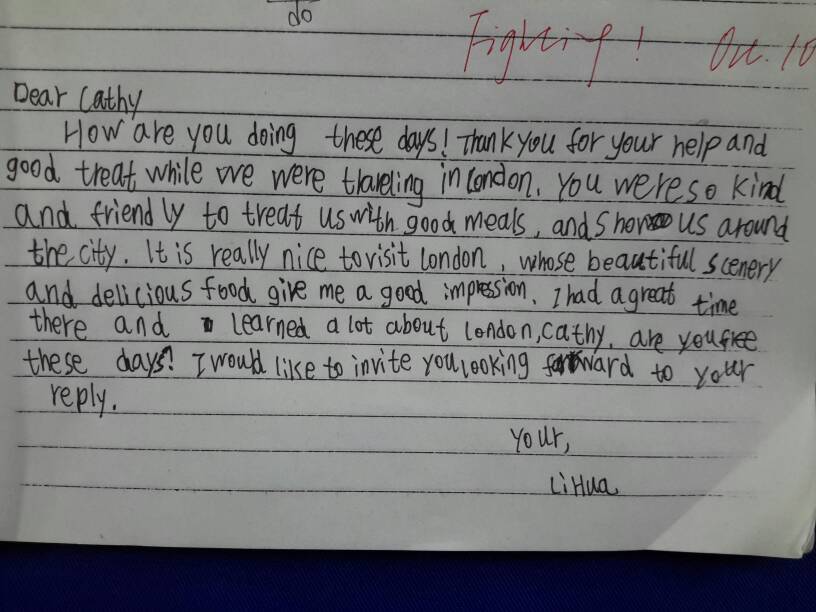 do
Fighting! Oct. 10
Dear Cathy
How are you doing these days! Thank you for your help and
good treat while we were traveling in London. You were so kind
and friendly to treat us with good meals, and show us around
the city. It is really nice to visit London, whose beautiful scenery
and delicious food give me a good impression. I had a great time
there and learned a lot about London, Cathy, are you free
these days? I would like to invite you looking forward to your
reply.
Your,
Li Hua